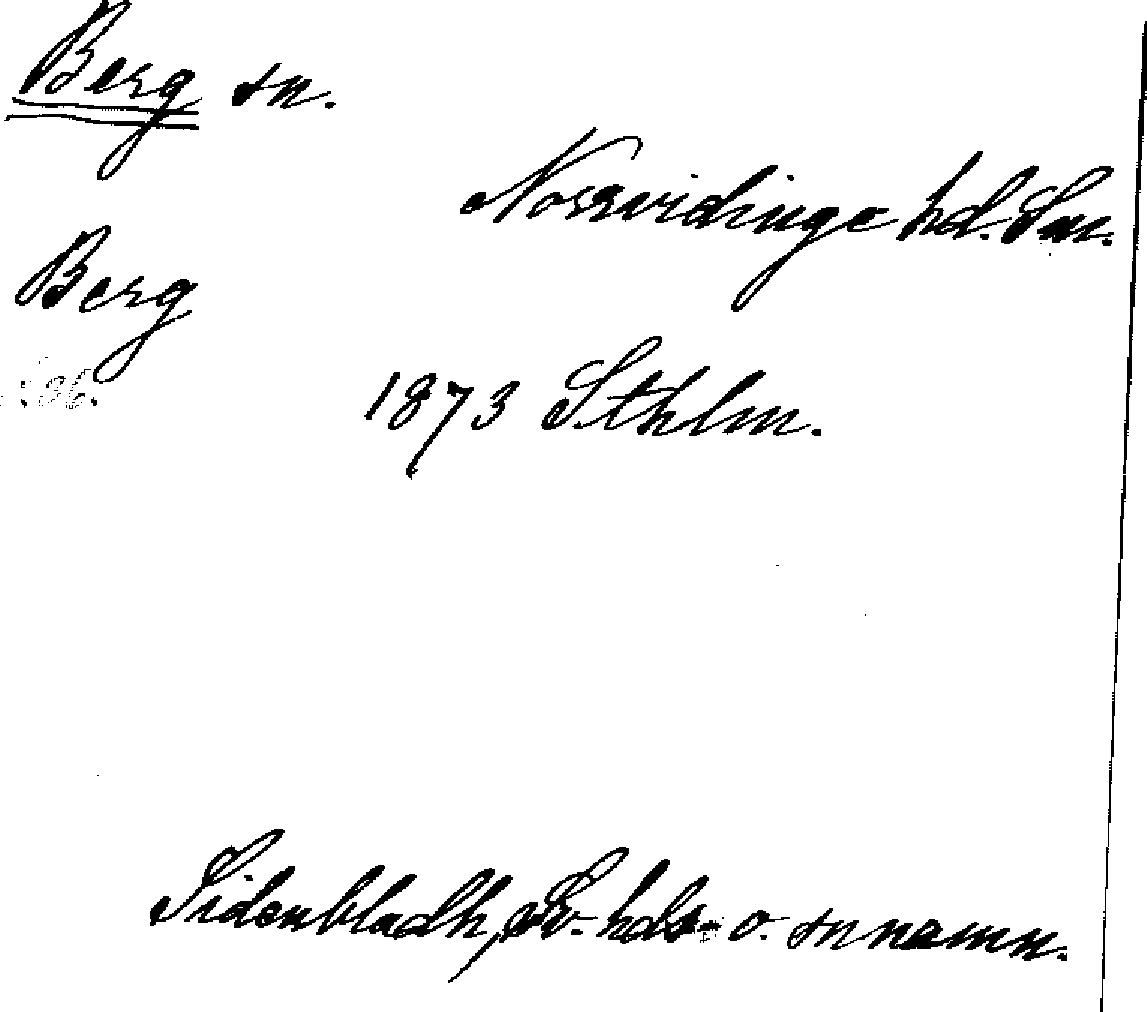 Berg sn.
Norrvidinge hd. Sm.
Berg
1873 Sthlm.
Sidenbladh, Sv. hds- o. snnamn.